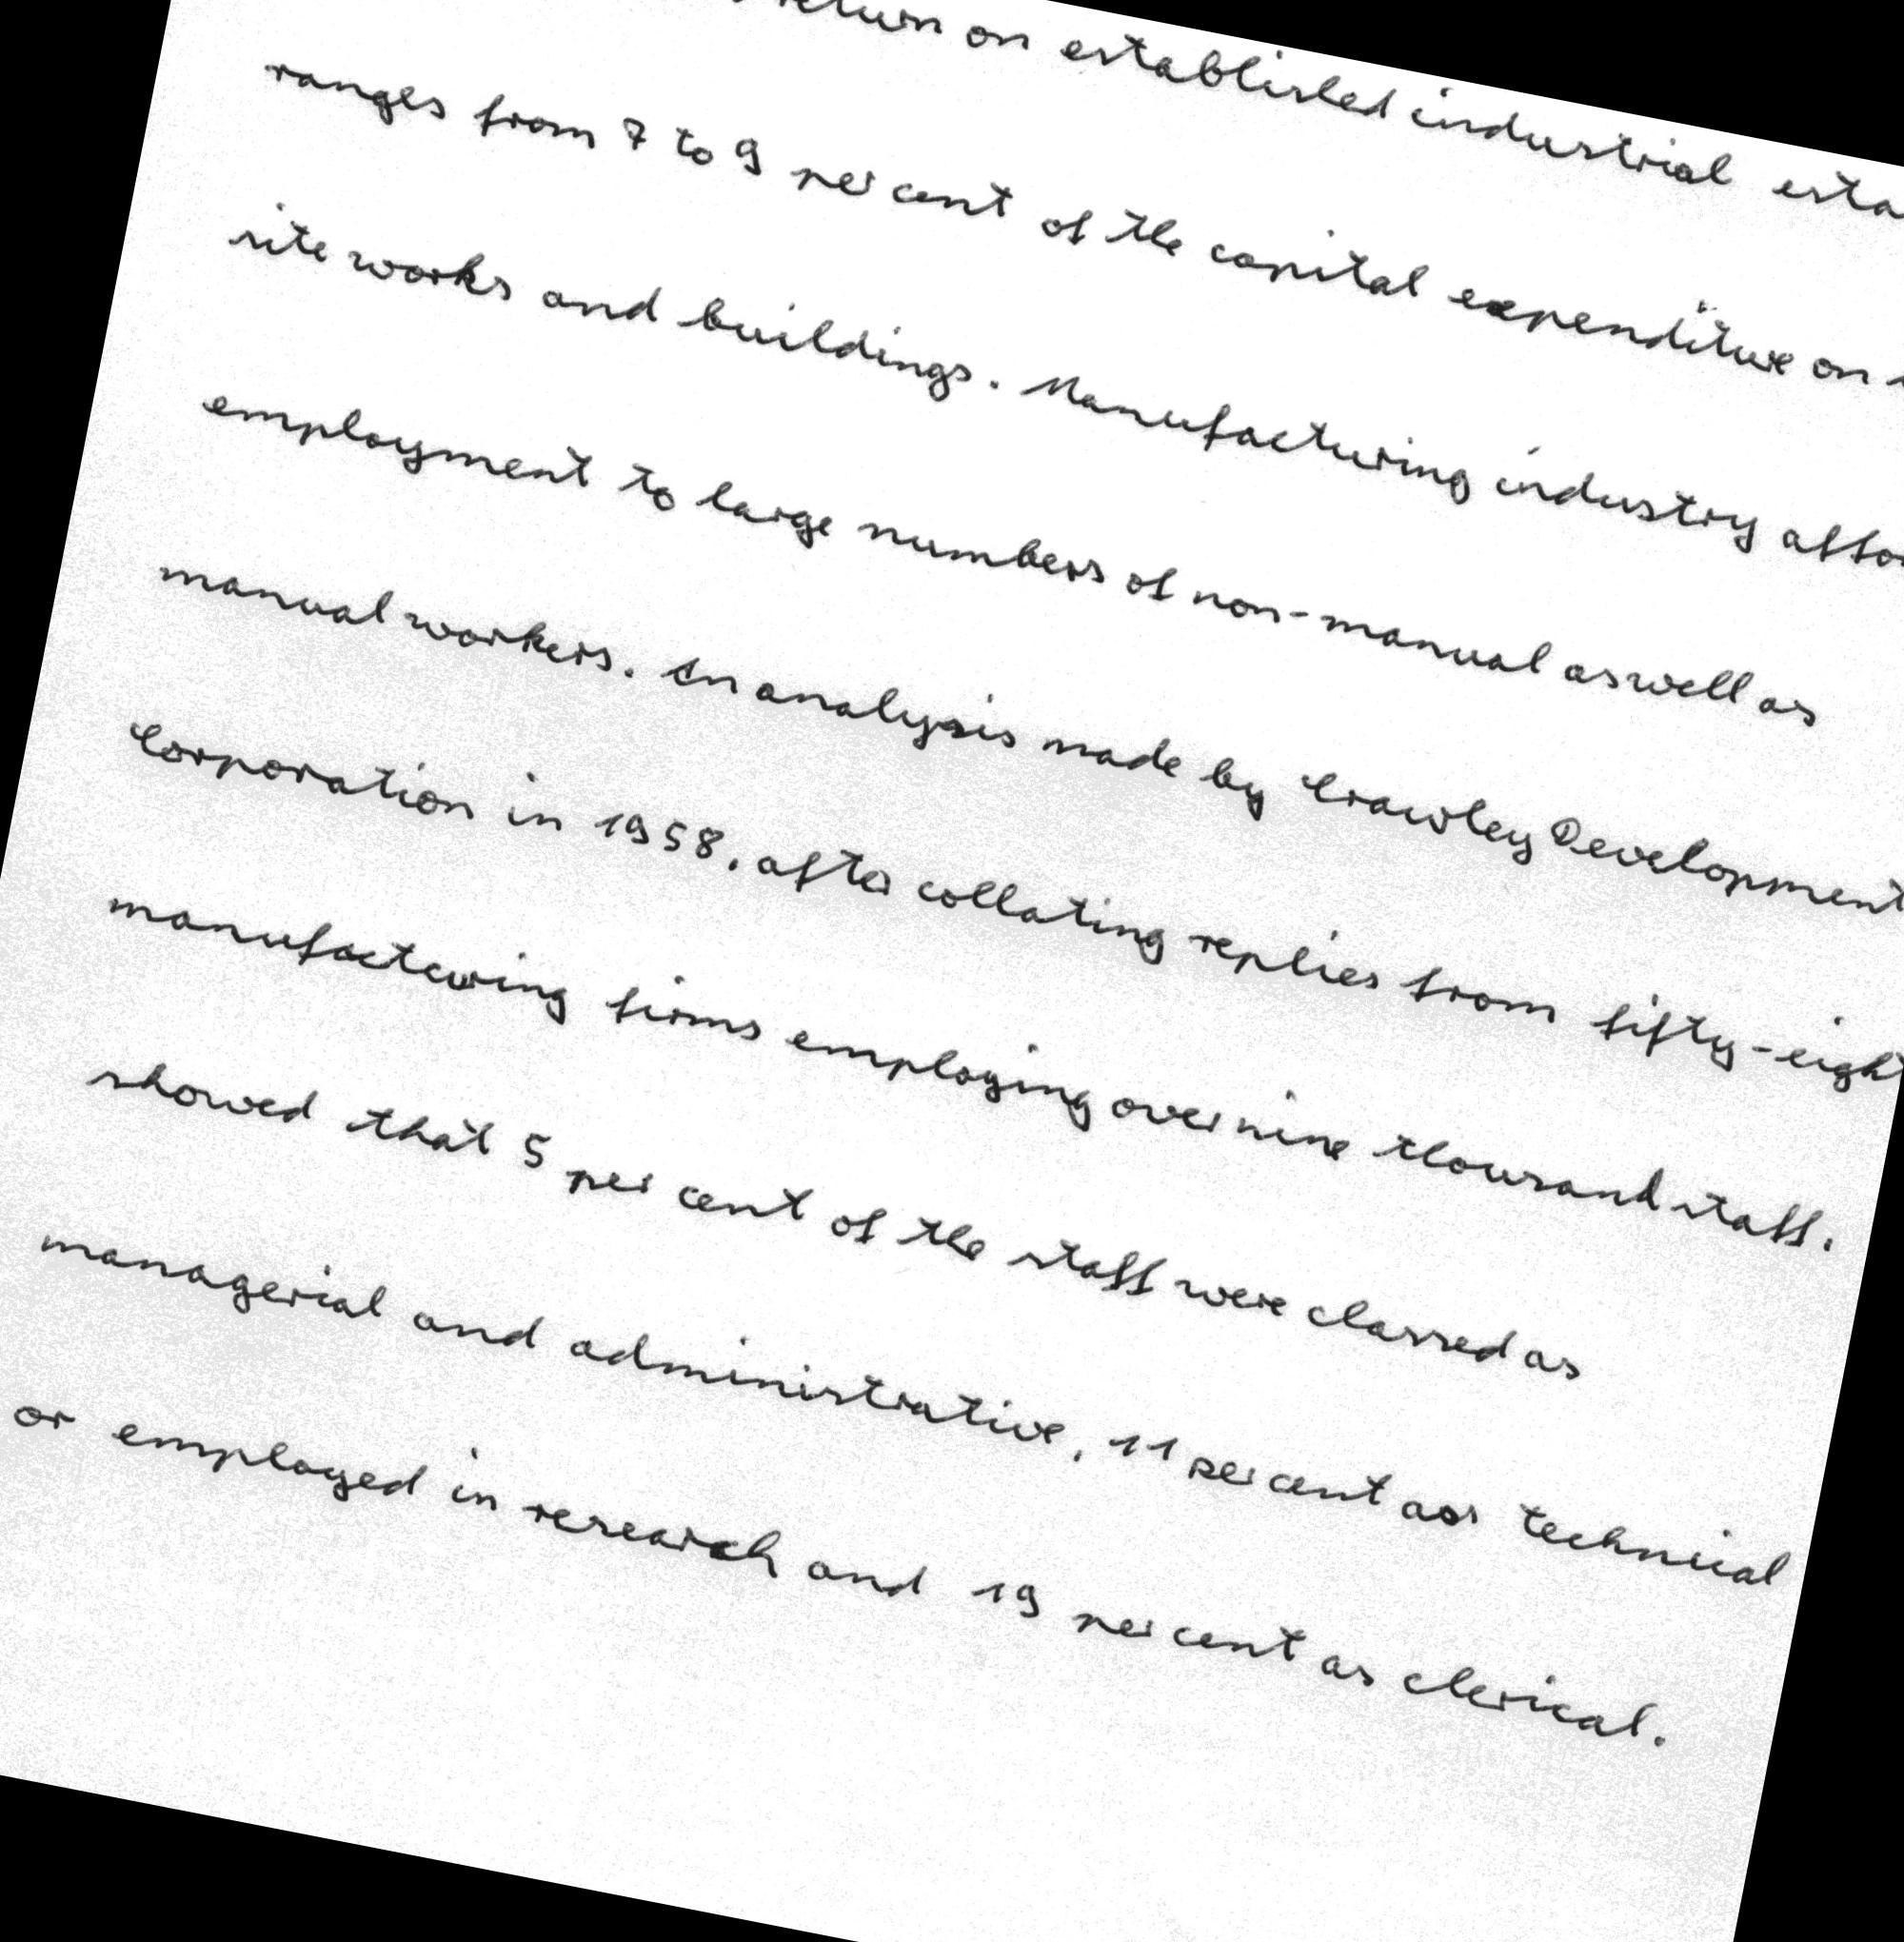 return on established industrial
ranges from 7 to 9 per cent of the capital expenditure on
site works and buildings. Manufacturing industry
employment to large numbers of non-manual as well as
manual workers. An analysis made by Crawley Development
Corporation in 1958, after collating replies from fifty-eight
manufacturing firms employing over nine thousand staff.
showed that 5 per cent of the staff were classed as
managerial and administrative, 11 per cent as technical
or employed in research and 19 per cent as clerical.